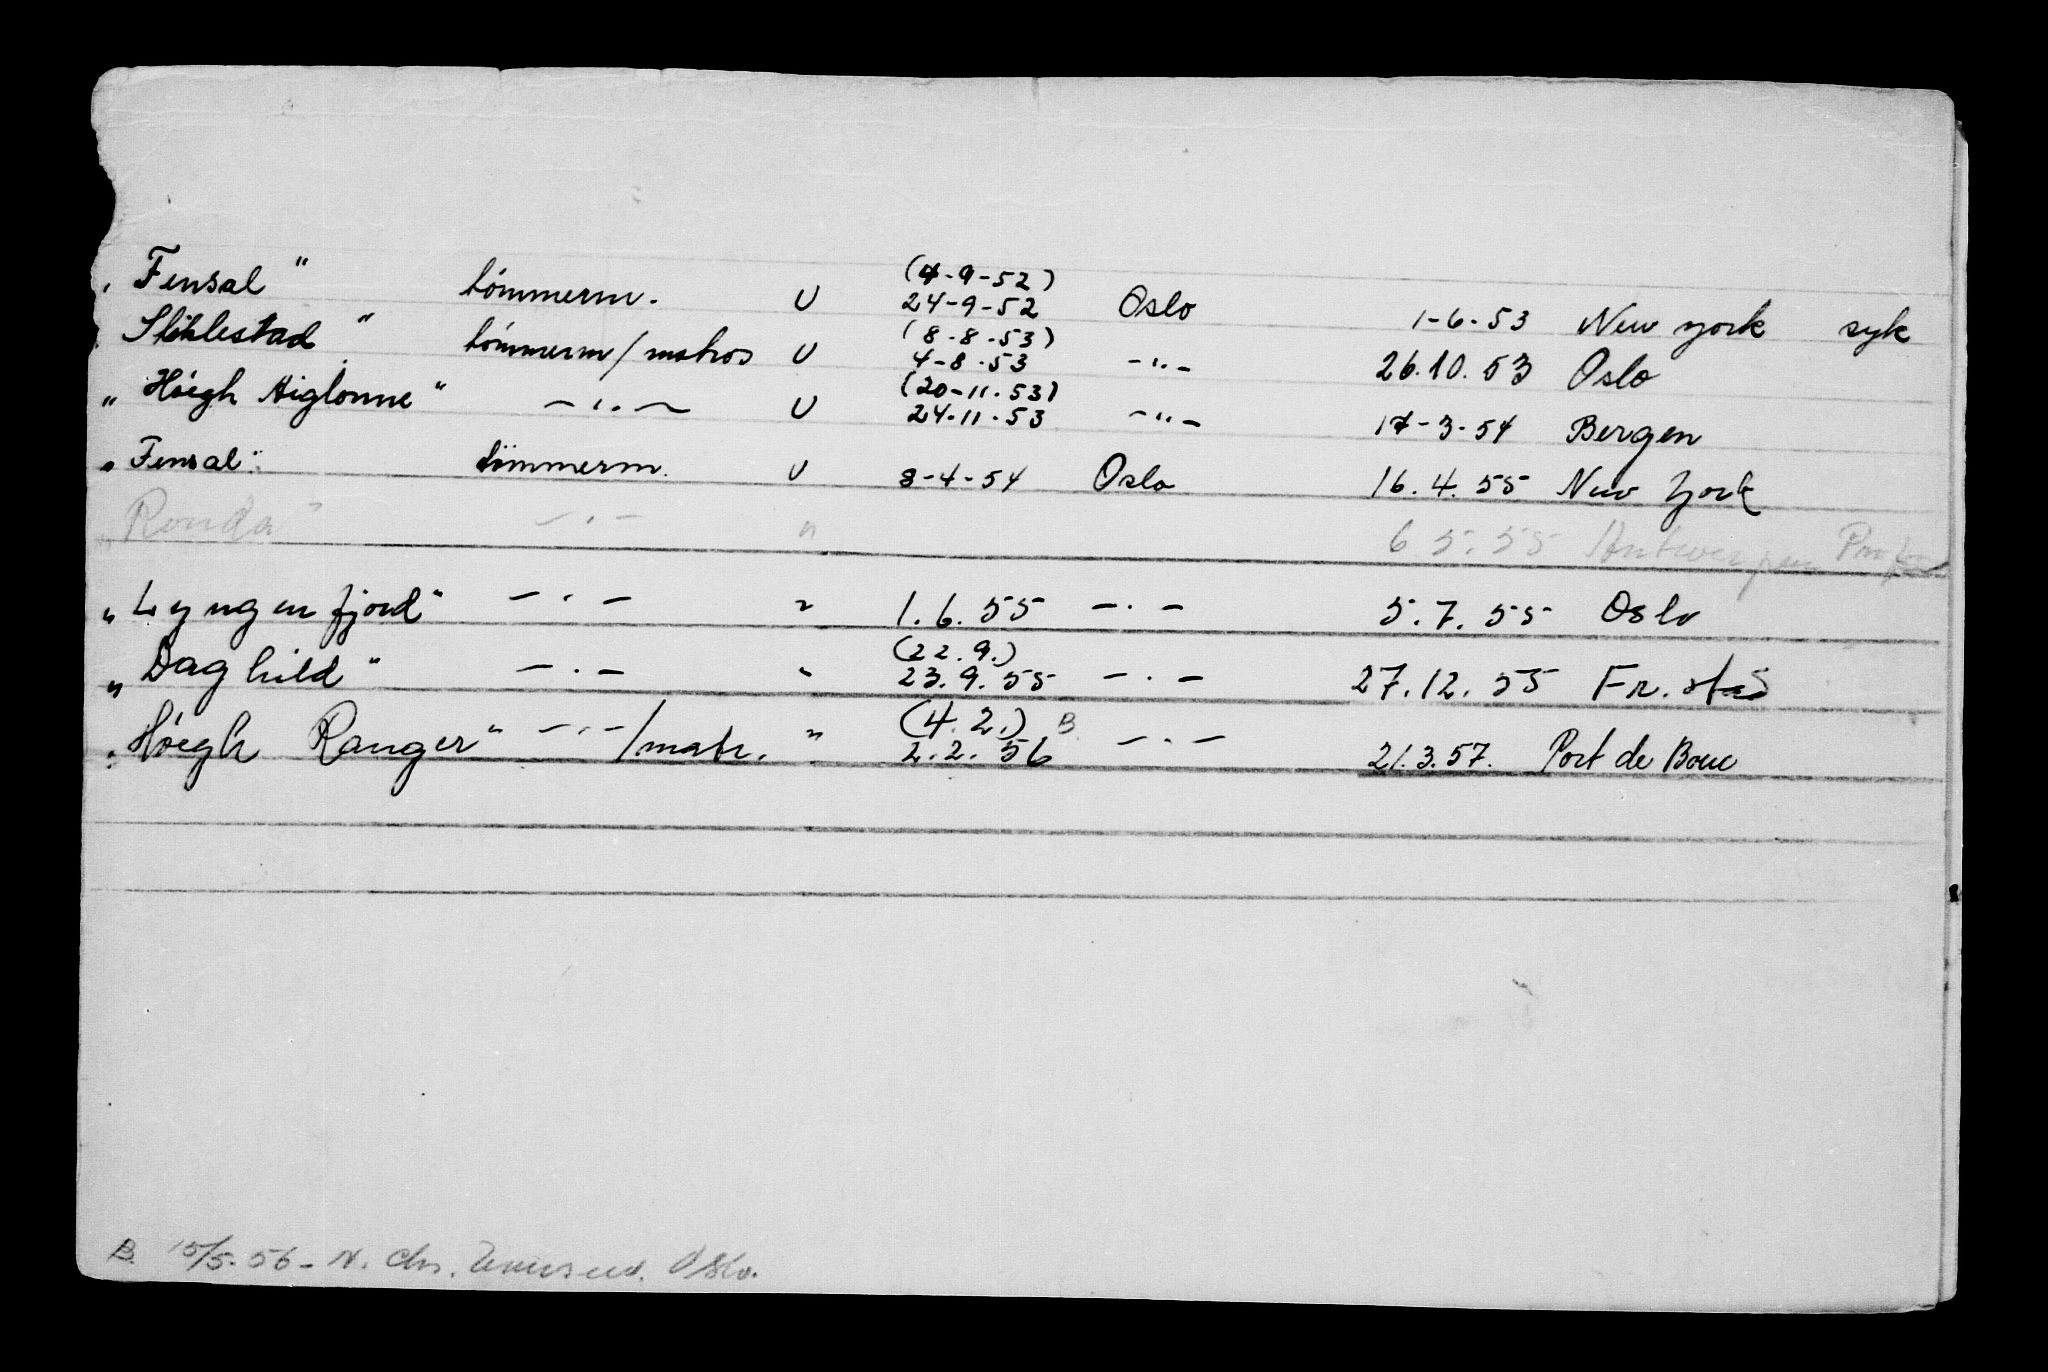 " Fensal " tømmerm. U (4-9-52) 24-9-52 Oslo 1-6-53 New York syk
" Stiklestad " tømmerm/matros U (8-8-53) 4-8-53 -"- 26.10.53 Oslo
" Höegh Aiglonne " -"- U (20-11-53) 24-11-53 -"- 17-3-54 Bergen
" Fensal " tømmerm. U 8-4-54 Oslo 16.4.55 New York
" Ronda " -"- " 6.5.55 Antwerpen
" Lyngenfjord " -"- " 1.6.55 -"- 5.7.55 Oslo
" Daghild " -"- " (22.9.) 23.9.55 -"- 27.12.55 Fr.stad
" Höegh Ranger " -"-/matr. " (4.2.) 2.2.56 B. -"- 21.3.57. Port de Bouc
B. 15/5-56 - N. Chr. Oslo.